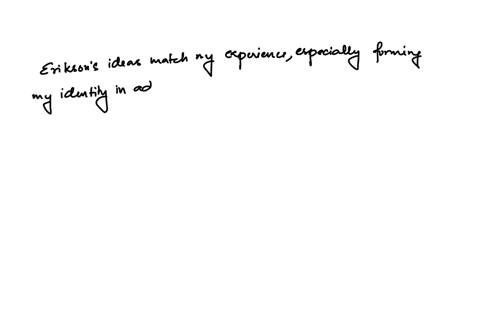 Erikson's ideas match my experience, especially forming
my identity in ad